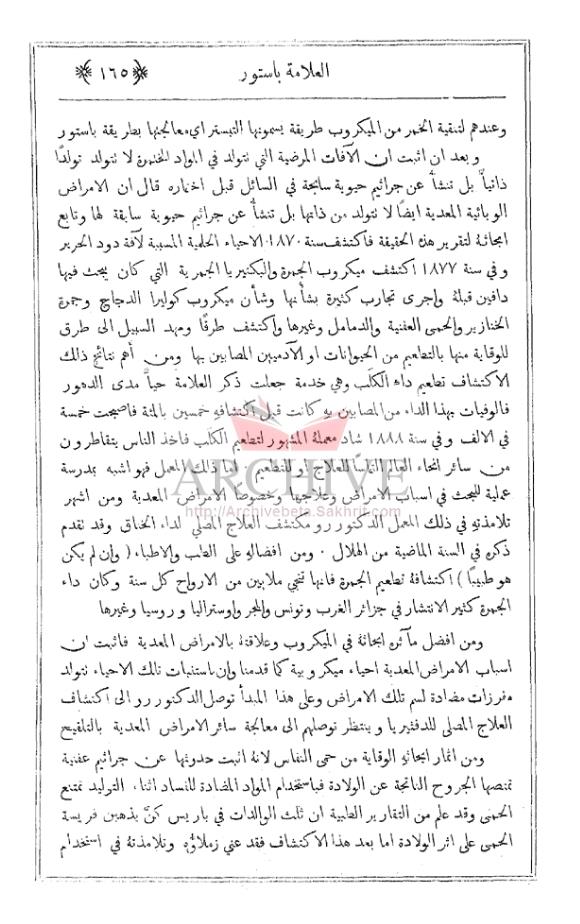 العلامة باستور
﴿١٦٥﴾
وعندهم لتنقية الخمر من الميكروب طريقة يسمونها التيستراي معالجتها بطريقة باستور
وبعد ان اثبت ان الآفات المرضية التي تتولد في المواد المختمرة لا تتولد تولدًا
ذاتيًّا بل تنشأ عن جراثيم حيوية سابحة في السائل قبل اختماره قال ان الامراض
الوبائية المعدية ايضًا لا تتولد من ذاتها بل تنشأ عن جراثيم حيوية سابقة لها وتابع
ابحاثهُ لتقرير هذه الحقيقة فاكتشف سنة ١٨٧٠ الاحياء الحلمية المسببة لآفة دود الحرير
وفي سنة ١٨٧٧ اكتشف ميكروب الجمرة والبكتيريا الجمرية التي كان يبحث فيها
دافين قبلهُ واجرى تجارب كثيرة بشأنها وشأن ميكروب كوليرا الدجاج وجمرة
الخنازير والحمى العفنية والدمامل وغيرها واكتشف طرقًا ومهد السبيل الى طرق
للوقاية منها بالتطعيم من الحيوانات او الآدميين المصابين بها ومن أهم نتائج ذلك
الاكتشاف تطعيم داء الكَلَب وهي خدمة جعلت ذكر العلامة حيًّا مدى الدهور
فالوفيات بهذا الداء من المصابين به كانت قبل اكتشافهِ خمسين بالمئة فاصبحت خمسة
في الالف وفي سنة ١٨٨٨ شاد معملهُ المشهور لتطعيم الكَلَب فاخذ الناس يتقاطرون
من سائر انحاء العالم التماسًا للعلاج او للتطعيم اما ذلك المعمل فهو اشبه بمدرسة
ARCHIVE
عملية للبحث في اسباب الامراض وعلاجها وخصوصًا الامراض المعدية ومن اشهر
http://Archivebeta.Sakhrit.com
تلامذتهِ في ذلك المعمل الدكتور رو مكتشف العلاج المصلي لداء الخناق وقد تقدم
ذكره في السنة الماضية من الهلال . ومن افضالهِ على الطب والاطباء ( وإن لم يكن
هو طبيبًا ) اكتشافهُ تطعيم الجمرة فانها تنجي ملايين من الارواح كل سنة وكان داء
الجمرة كثير الانتشار في جزائر الغرب وتونس والمجر واوستراليا وروسيا وغيرها
ومن افضل مآثره ابحاثهُ في الميكروب وعلاقتهُ بالامراض المعدية فاثبت ان
اسباب الامراض المعدية احياء ميكروبية كما قدمنا وإن باستنبات تلك الاحياء تتولد
مفرزات مضادة لسم تلك الامراض وعلى هذا المبدأ توصل الدكتور رو الى اكتشاف
العلاج المصلي للدفثيريا وينتظر توصلهم الى معالجة سائر الامراض المعدية بالتلقيح
ومن اثمار ابحاثهِ الوقاية من حمى النفاس لانهُ اثبت حدوثها عن جراثيم عفنية
تمتصها الجروح الناتجة عن الولادة فباستخدام المواد المضادة للفساد اثناء التوليد تمتنع
الحمى وقد علم من التقارير الطبية ان ثلث الوالدات في باريس كنَّ يذهبن فريسة
الحمى على اثر الولادة اما بعد هذا الاكتشاف فقد عني زملاؤه وتلامذتهُ في استخدام